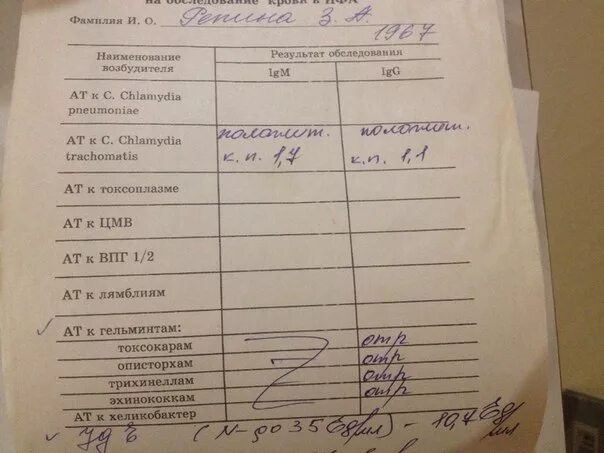 на обследование крови в ИФА
Фамилия И. О. Репина З. А.
1967
Наименование возбудителя Результат обследования
IgM IgG
АТ к C. Chlamydia pneumoniae
АТ к C. Chlamydia trachomatis положит. к.п. 1,7 положит. к.п. 1,1
АТ к токсоплазме
АТ к ЦМВ
АТ к ВПГ 1/2
АТ к лямблиям
АТ к гельминтам:
токсокарам отр
описторхам отр
трихинеллам отр
эхинококкам отр
АТ к хеликобактер
Ig E (N - до 35 Ед/мл) - 10,7 Ед/мл